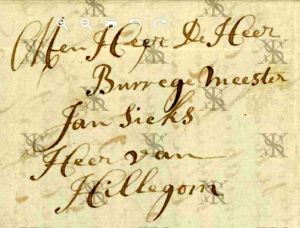 Men Heer De Heer
Burregemeester
Jan Sicks
Heer van
Hillegom